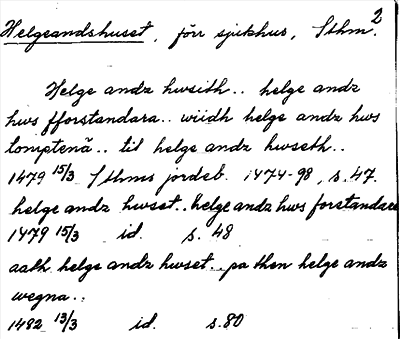 2
Helgeandshuset, förr sjukhus, Sthm.
Helge andz hwsith.. helge andz
hws fforstandara.. wiidh helge andz hws
tomptenā.. til helge andz hwseth..
1479 15/3 Sthms jordeb. 1474-98, s. 47.
helge andz hwset.. helge andz hws forstandare
1479 15/3 id. s. 48
aath helge andz hwset.. pa then helge andz
wegna..
1482 13/3 id. s. 80